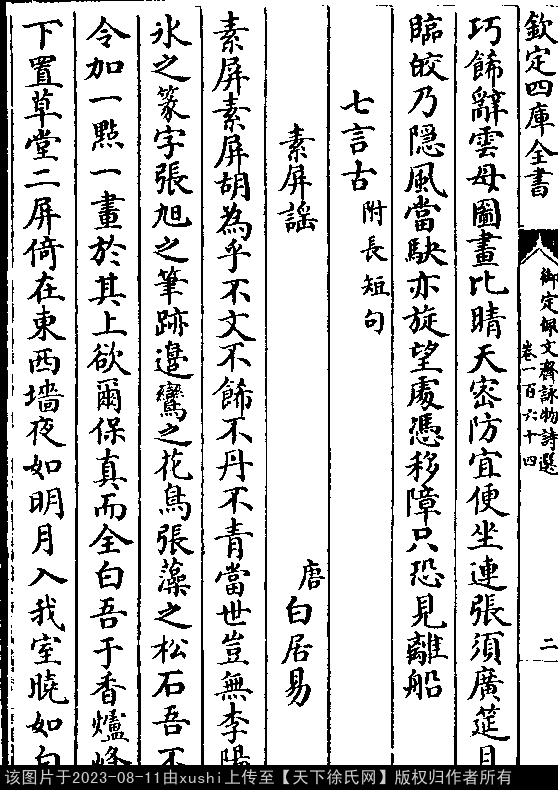 欽定四庫全書
御定佩文齋詠物詩選
卷一百六十四
二
巧餙辭雲母圖畫比晴天密防宜便坐連張須廣筵
臨皎乃隠風當駃亦旋望處憑移障只恐見離船
七言古
附長短句
素屏謡
唐
白居易
素屏素屏胡為乎不文不餙不丹不青當世豈無李陽
氷之篆字張旭之筆跡邉鸞之花鳥張藻之松石吾不
令加一點一畫於其上欲爾保真而全白吾于香爐峰
下置草堂二屏倚在東西墻夜如明月入我室曉如白
该图片于2023-08-11由xushi上传至【天下徐氏网】版权归作者所有